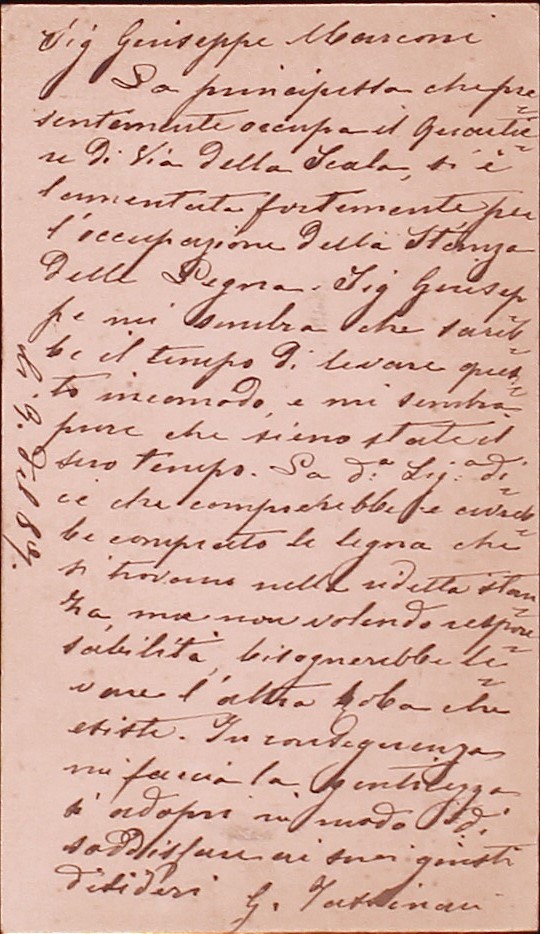 Sig Giuseppe Marconi
La principessa che pre=
sentemente occupa il Quartie=
re di Via della Scala, si è
lamentata fortemente per
l'occupazione della Stanza
delle Legna. Sig Giusep=
pe mi sembra che sareb=
be il tempo di levare ques=
to incomodo, e mi sembra
pure che sieno state il
suo tempo. La d.ª Sig.ª di=
ce che comprerebbe e avreb=
be comprato le legna che
si trovano nella udetta stan=
za, ma non volendo respon=
sabilità, bisognerebbe le=
vare l'altra roba che
esiste. In conseguenza
mi faccia la gentilezza
s'adopri in modo di
soddisfare ai suoi giusti
desideri
G. Tassinari
li 9. Feb 89.